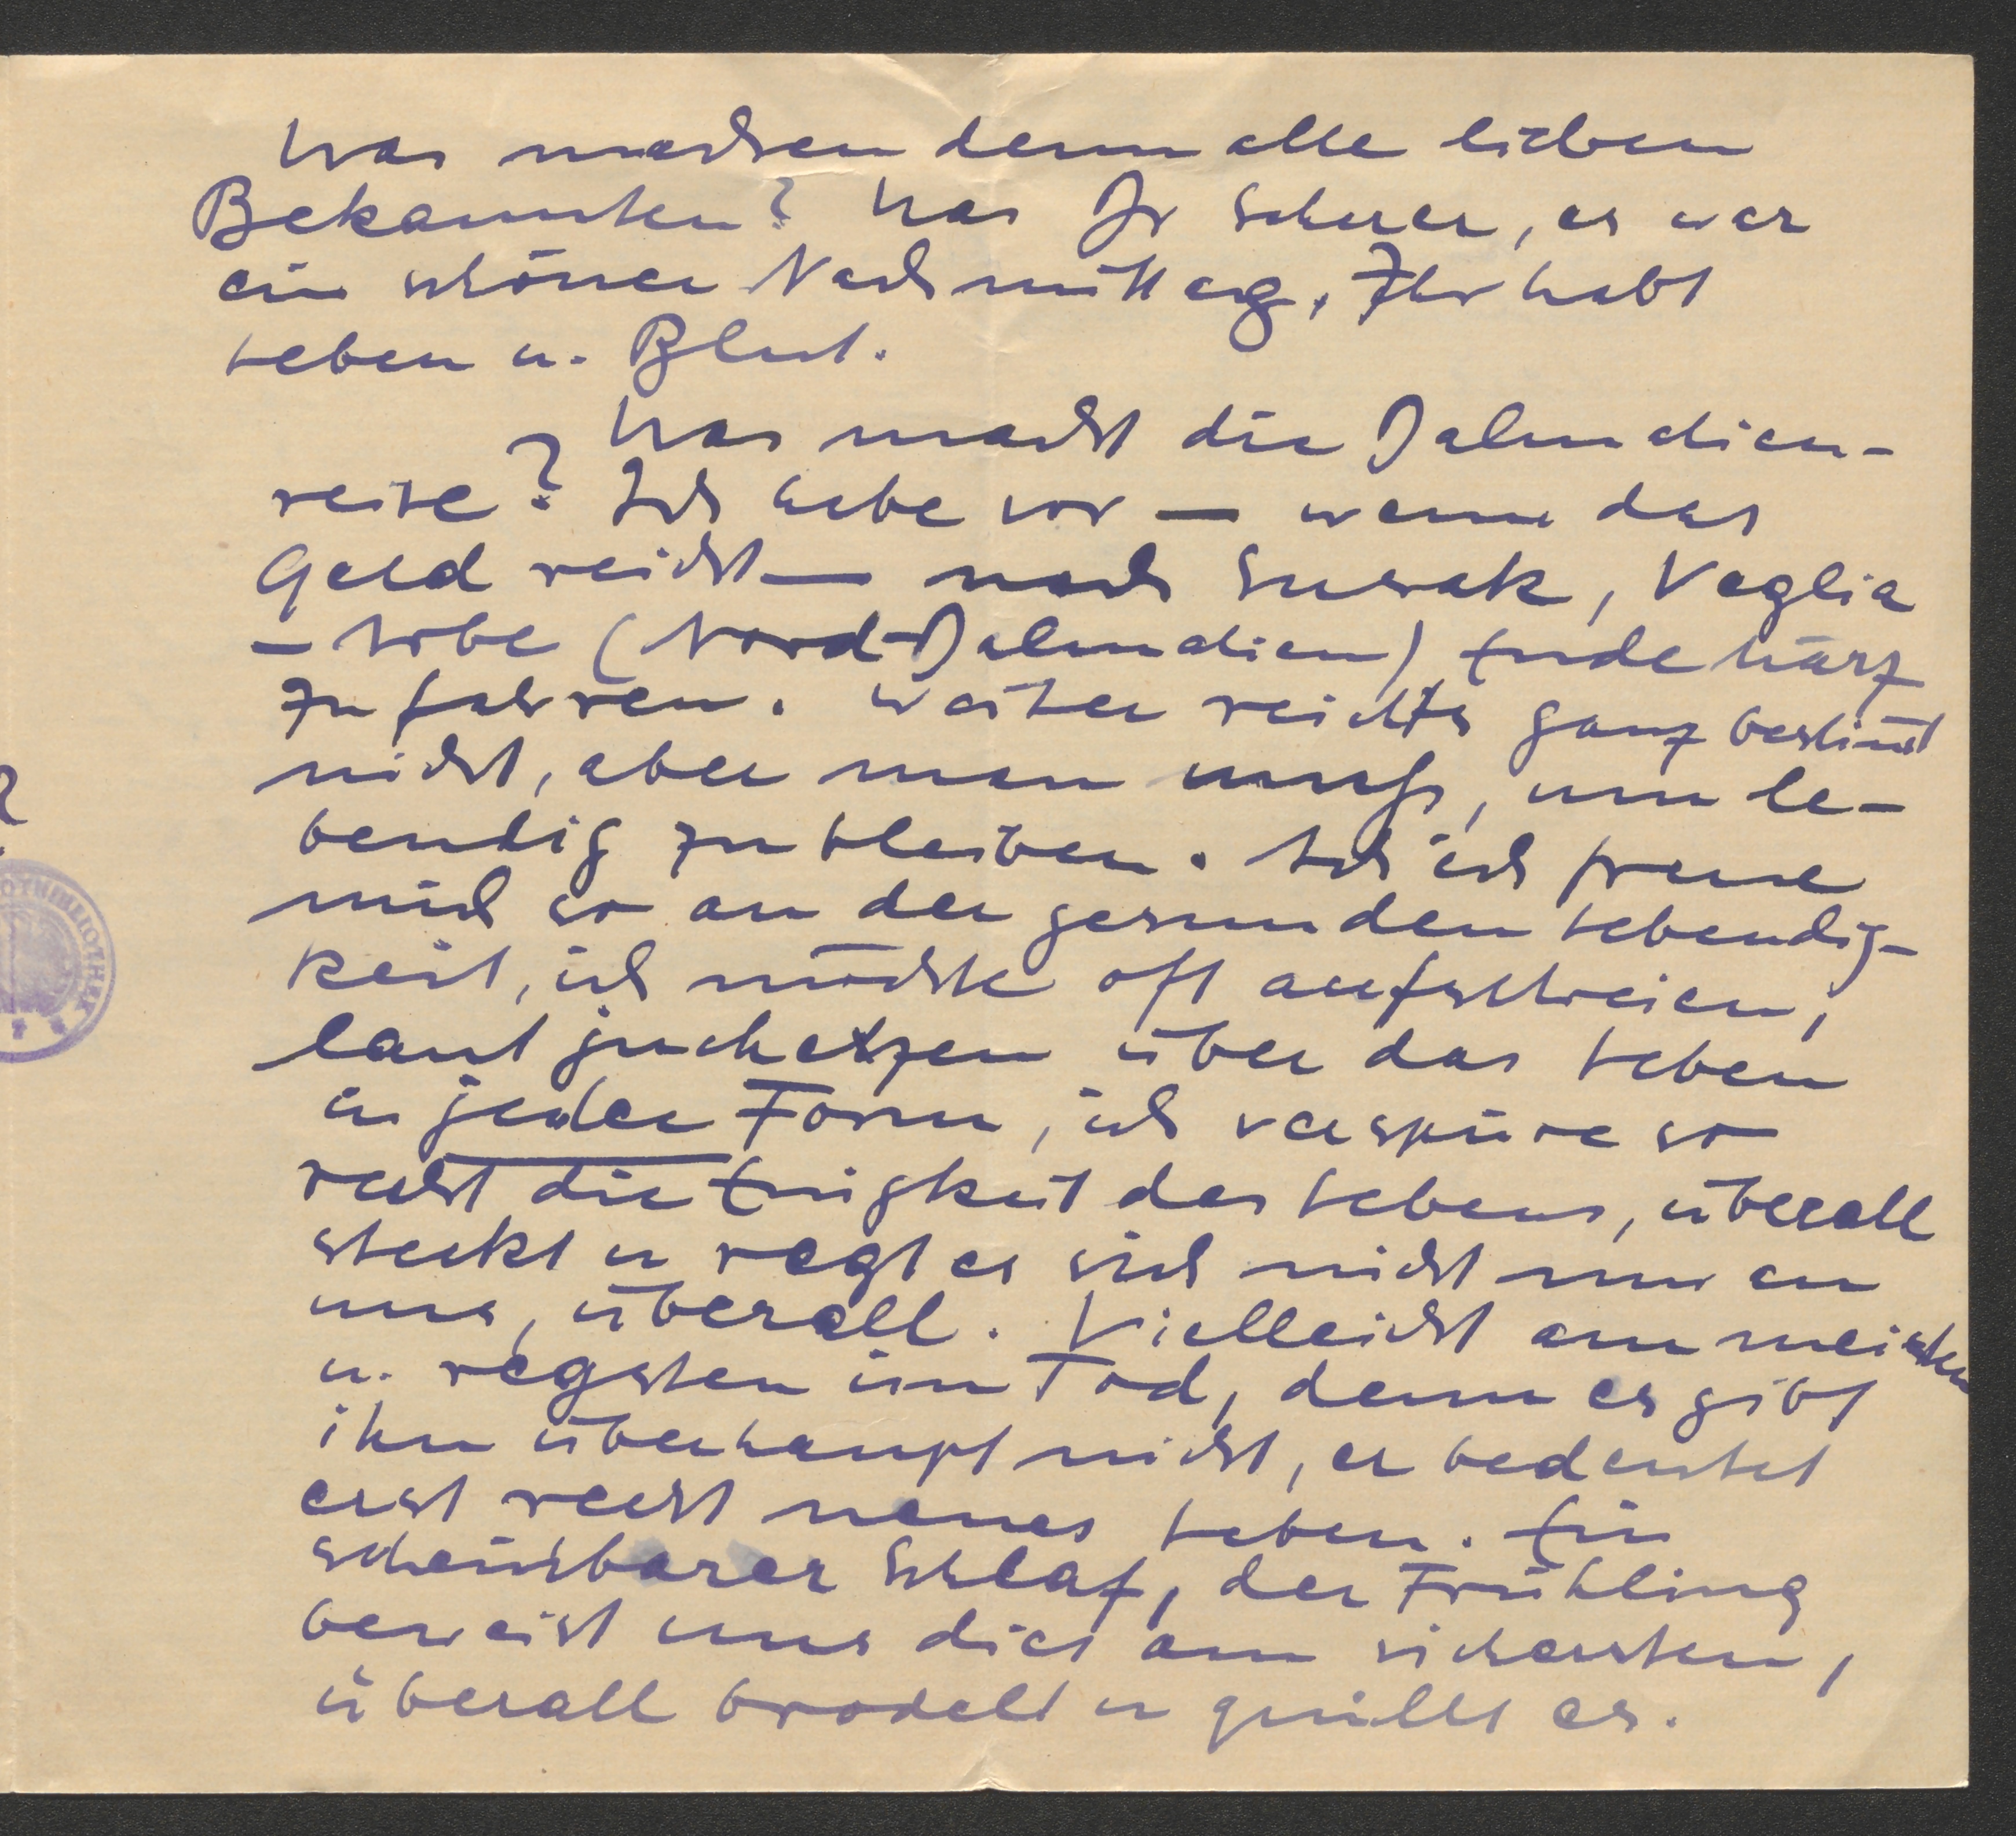 Was machen denn alle lieben
Bekannten? Was Dr Scherer, es war
ein schöner Nachmittag, Ihr habt
Leben u. Blut.
Was macht die Dalmatien-
reise? Ich habe vor — wenn das
Geld reicht — nach Susak, Veglia
– Arbe (Nord-Dalmatien) Ende März
zu fahren. Weiter reichts ganz bestimt
nicht, aber man muß, um le-
bendig zu bleiben. Ach ich freue
mich so an der gesunden Lebendig-
keit, ich möchte oft aufschreien,
laut juchetzen über das Leben
in jeder Form, ich verspüre so
recht die Ewigkeit des Lebens, überall
steckt u regt es sich nicht nur an
uns, überall. Vielleicht am meisten
u. regsten im Tod, denn es gibt
ihn überhaupt nicht, er bedeutet
erst recht neues Leben. Ein
scheinbarer Schlaf, der Frühling
beweist uns dies am sichersten,
überall brodelt u quillt es.